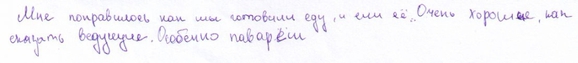 Мне понравилось как мы готовили еду, и ели её. Очень хорошие, как
сказать ведущие. Особенно паварёши